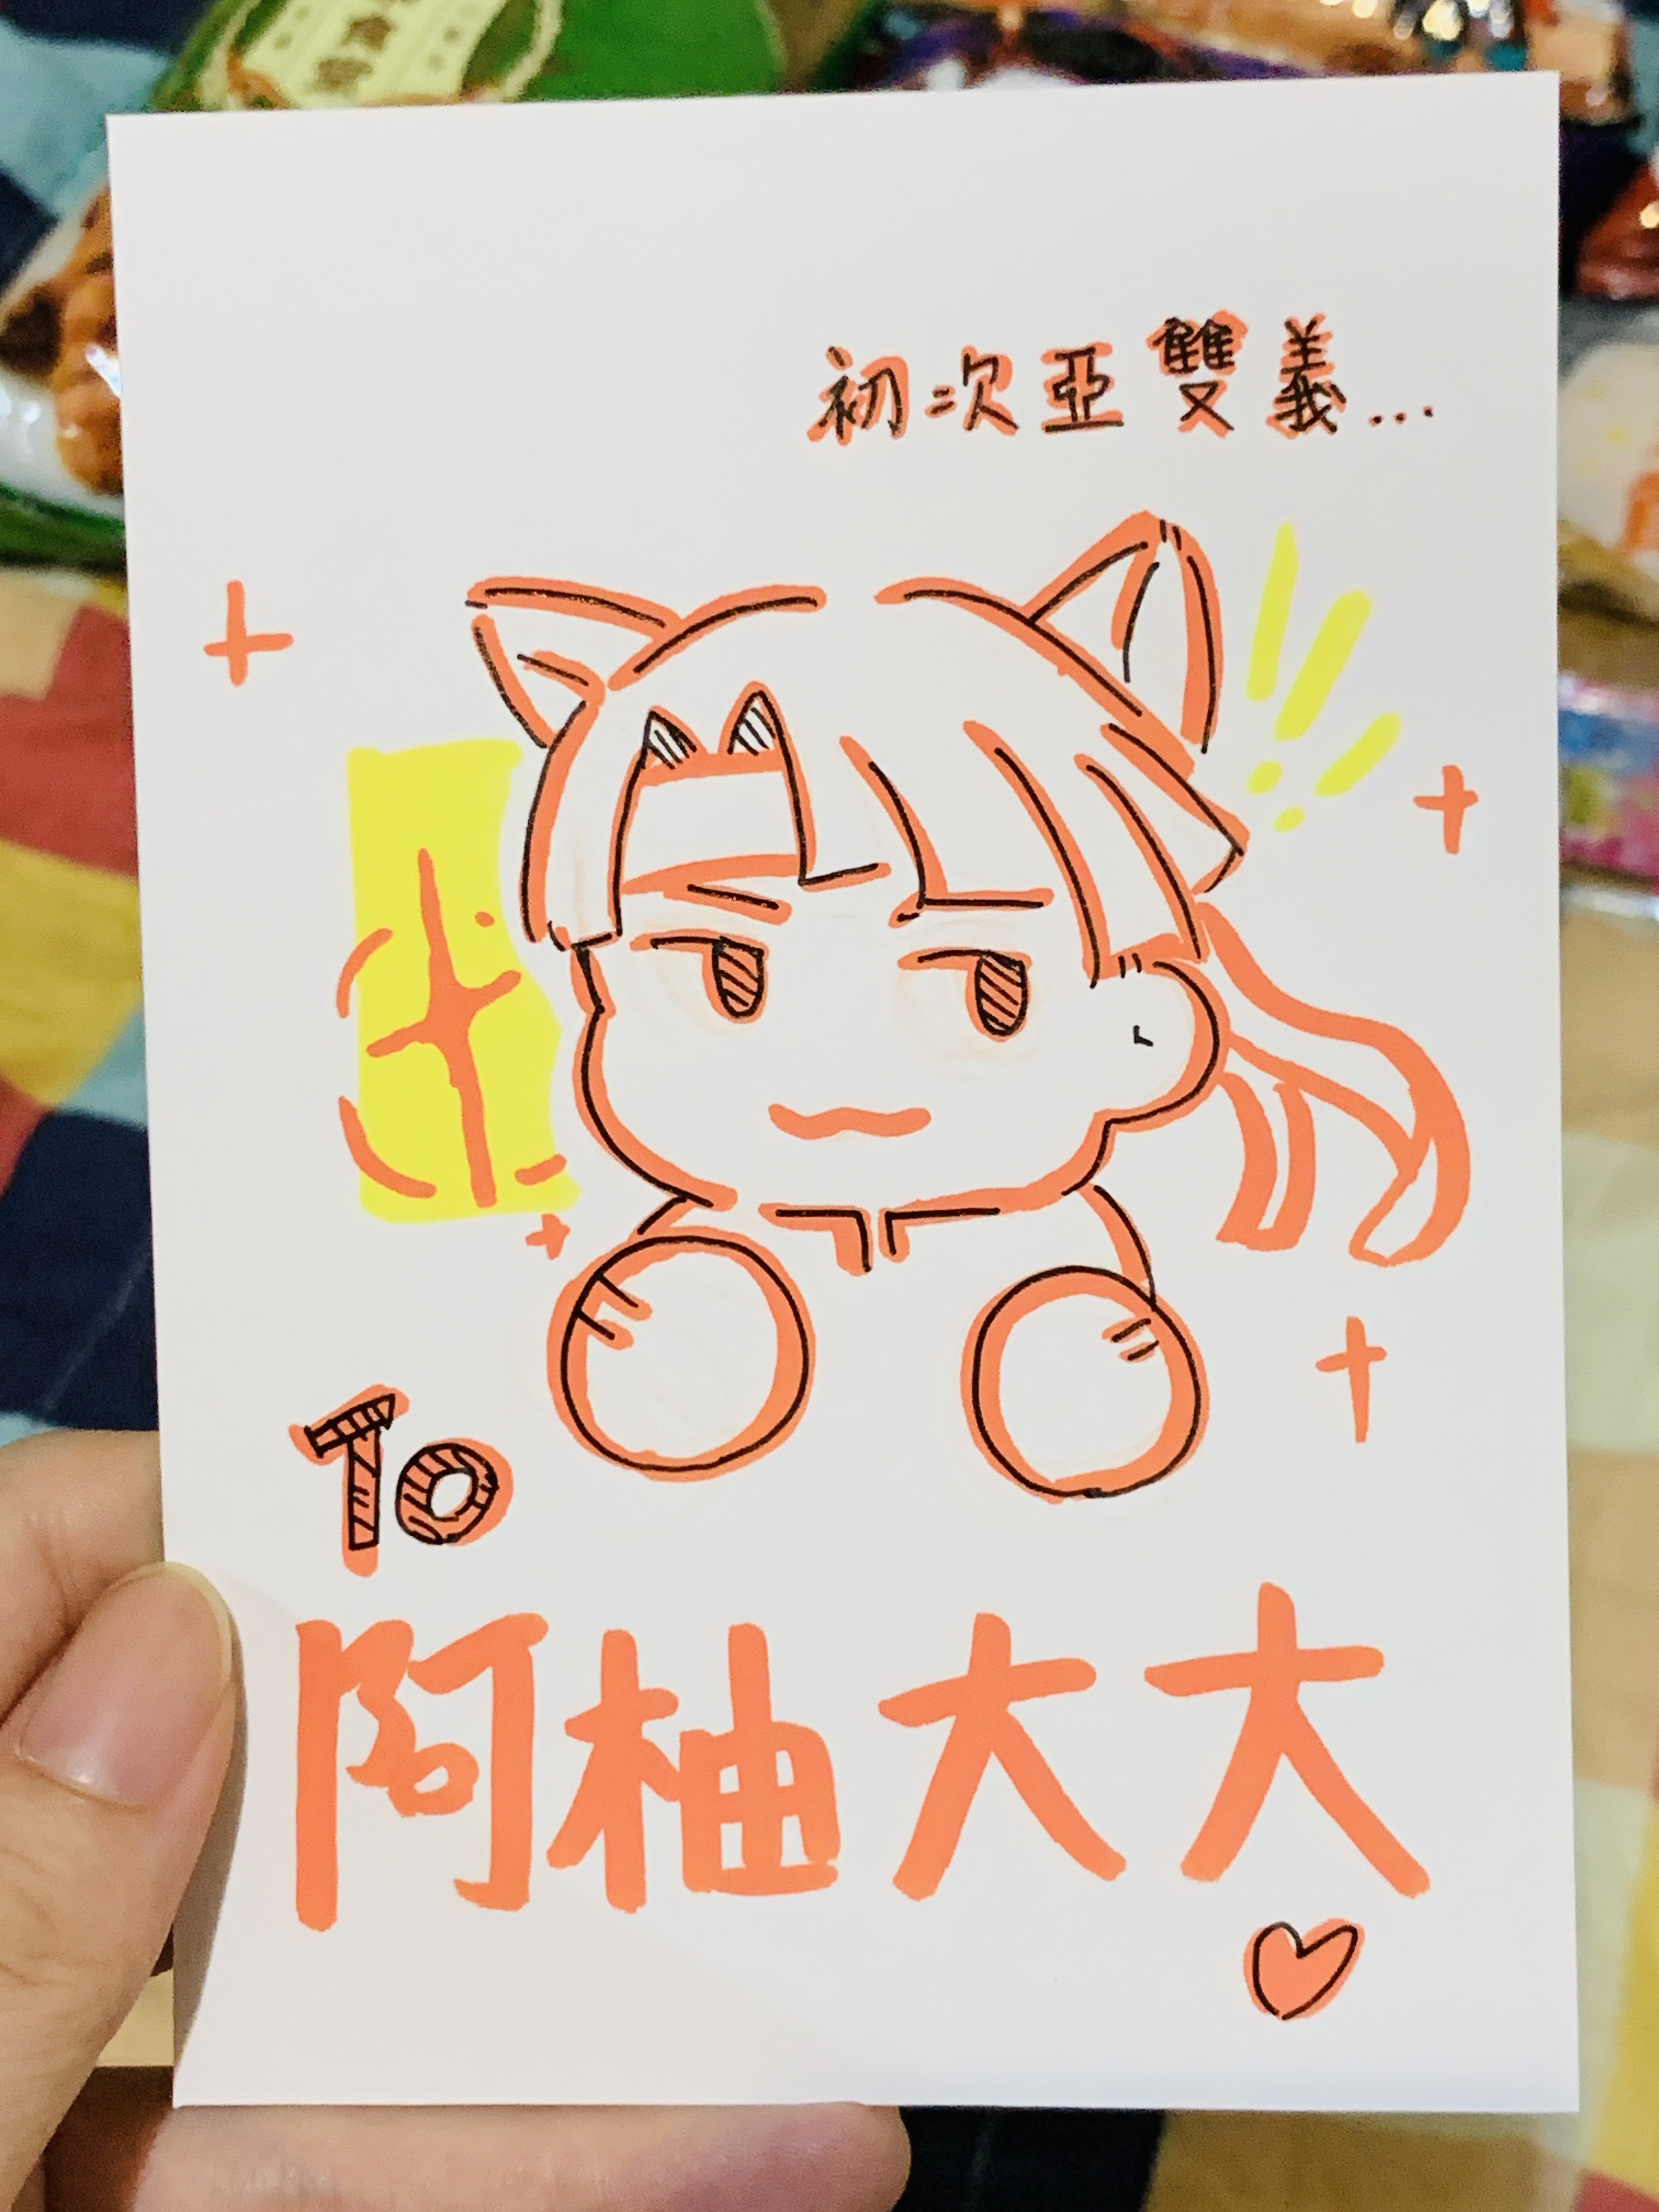 初次亞雙義...
To
阿柚大大